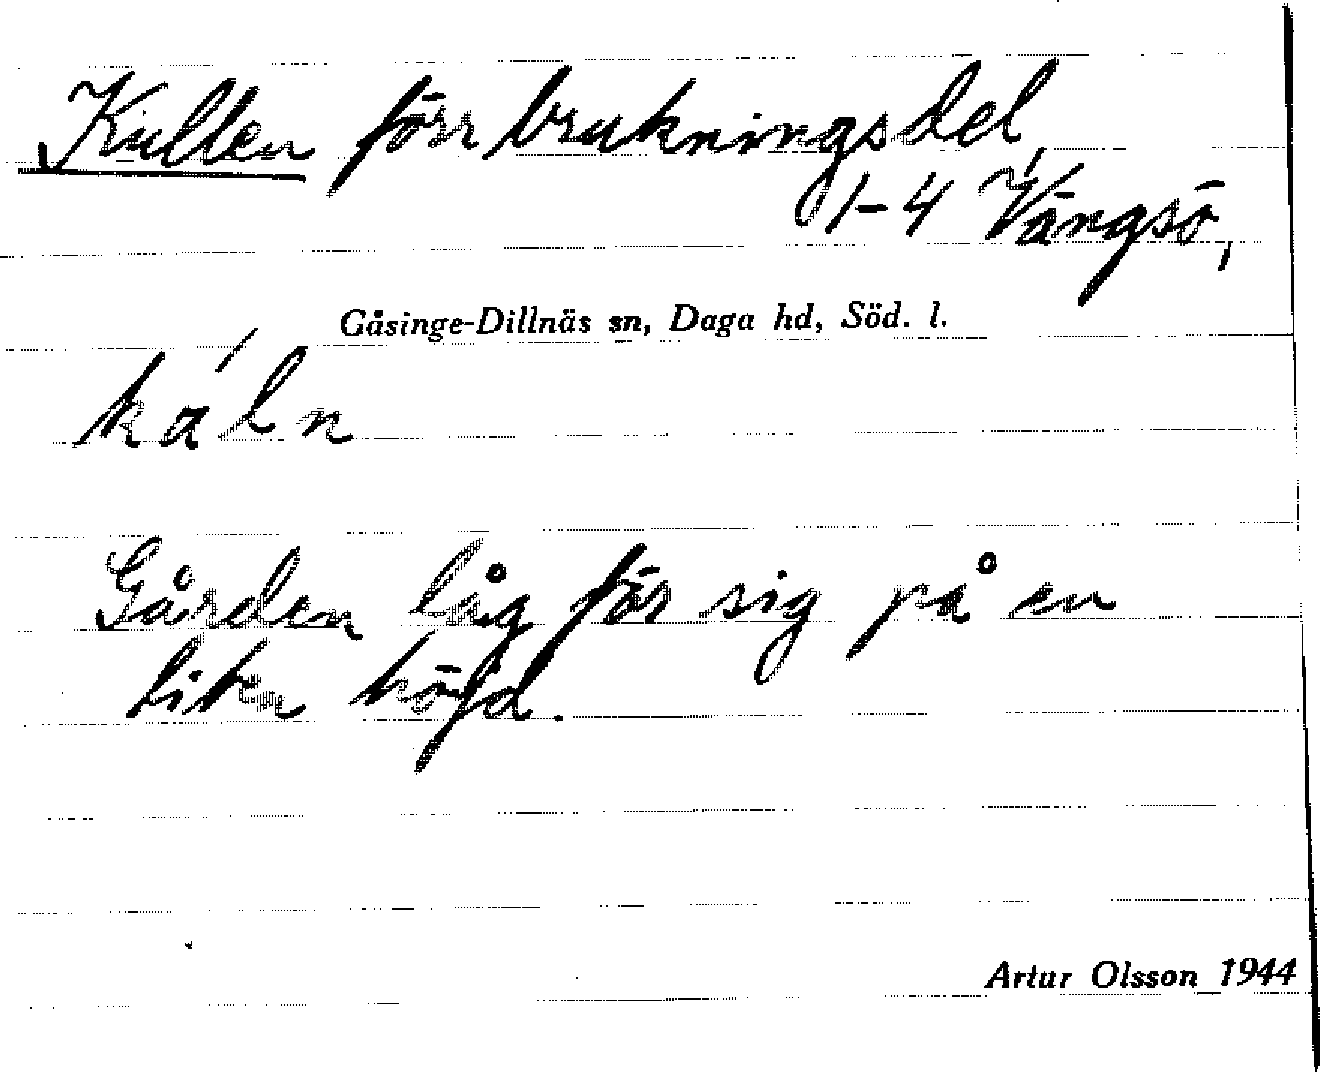 Kullen förr brukningsdel,
1-4 Vängsö,
Gåsinge-Dillnäs sn, Daga hd, Söd. l.
ka´ln
Gården låg för sig på en
liten höjd.
Artur Olsson 1944